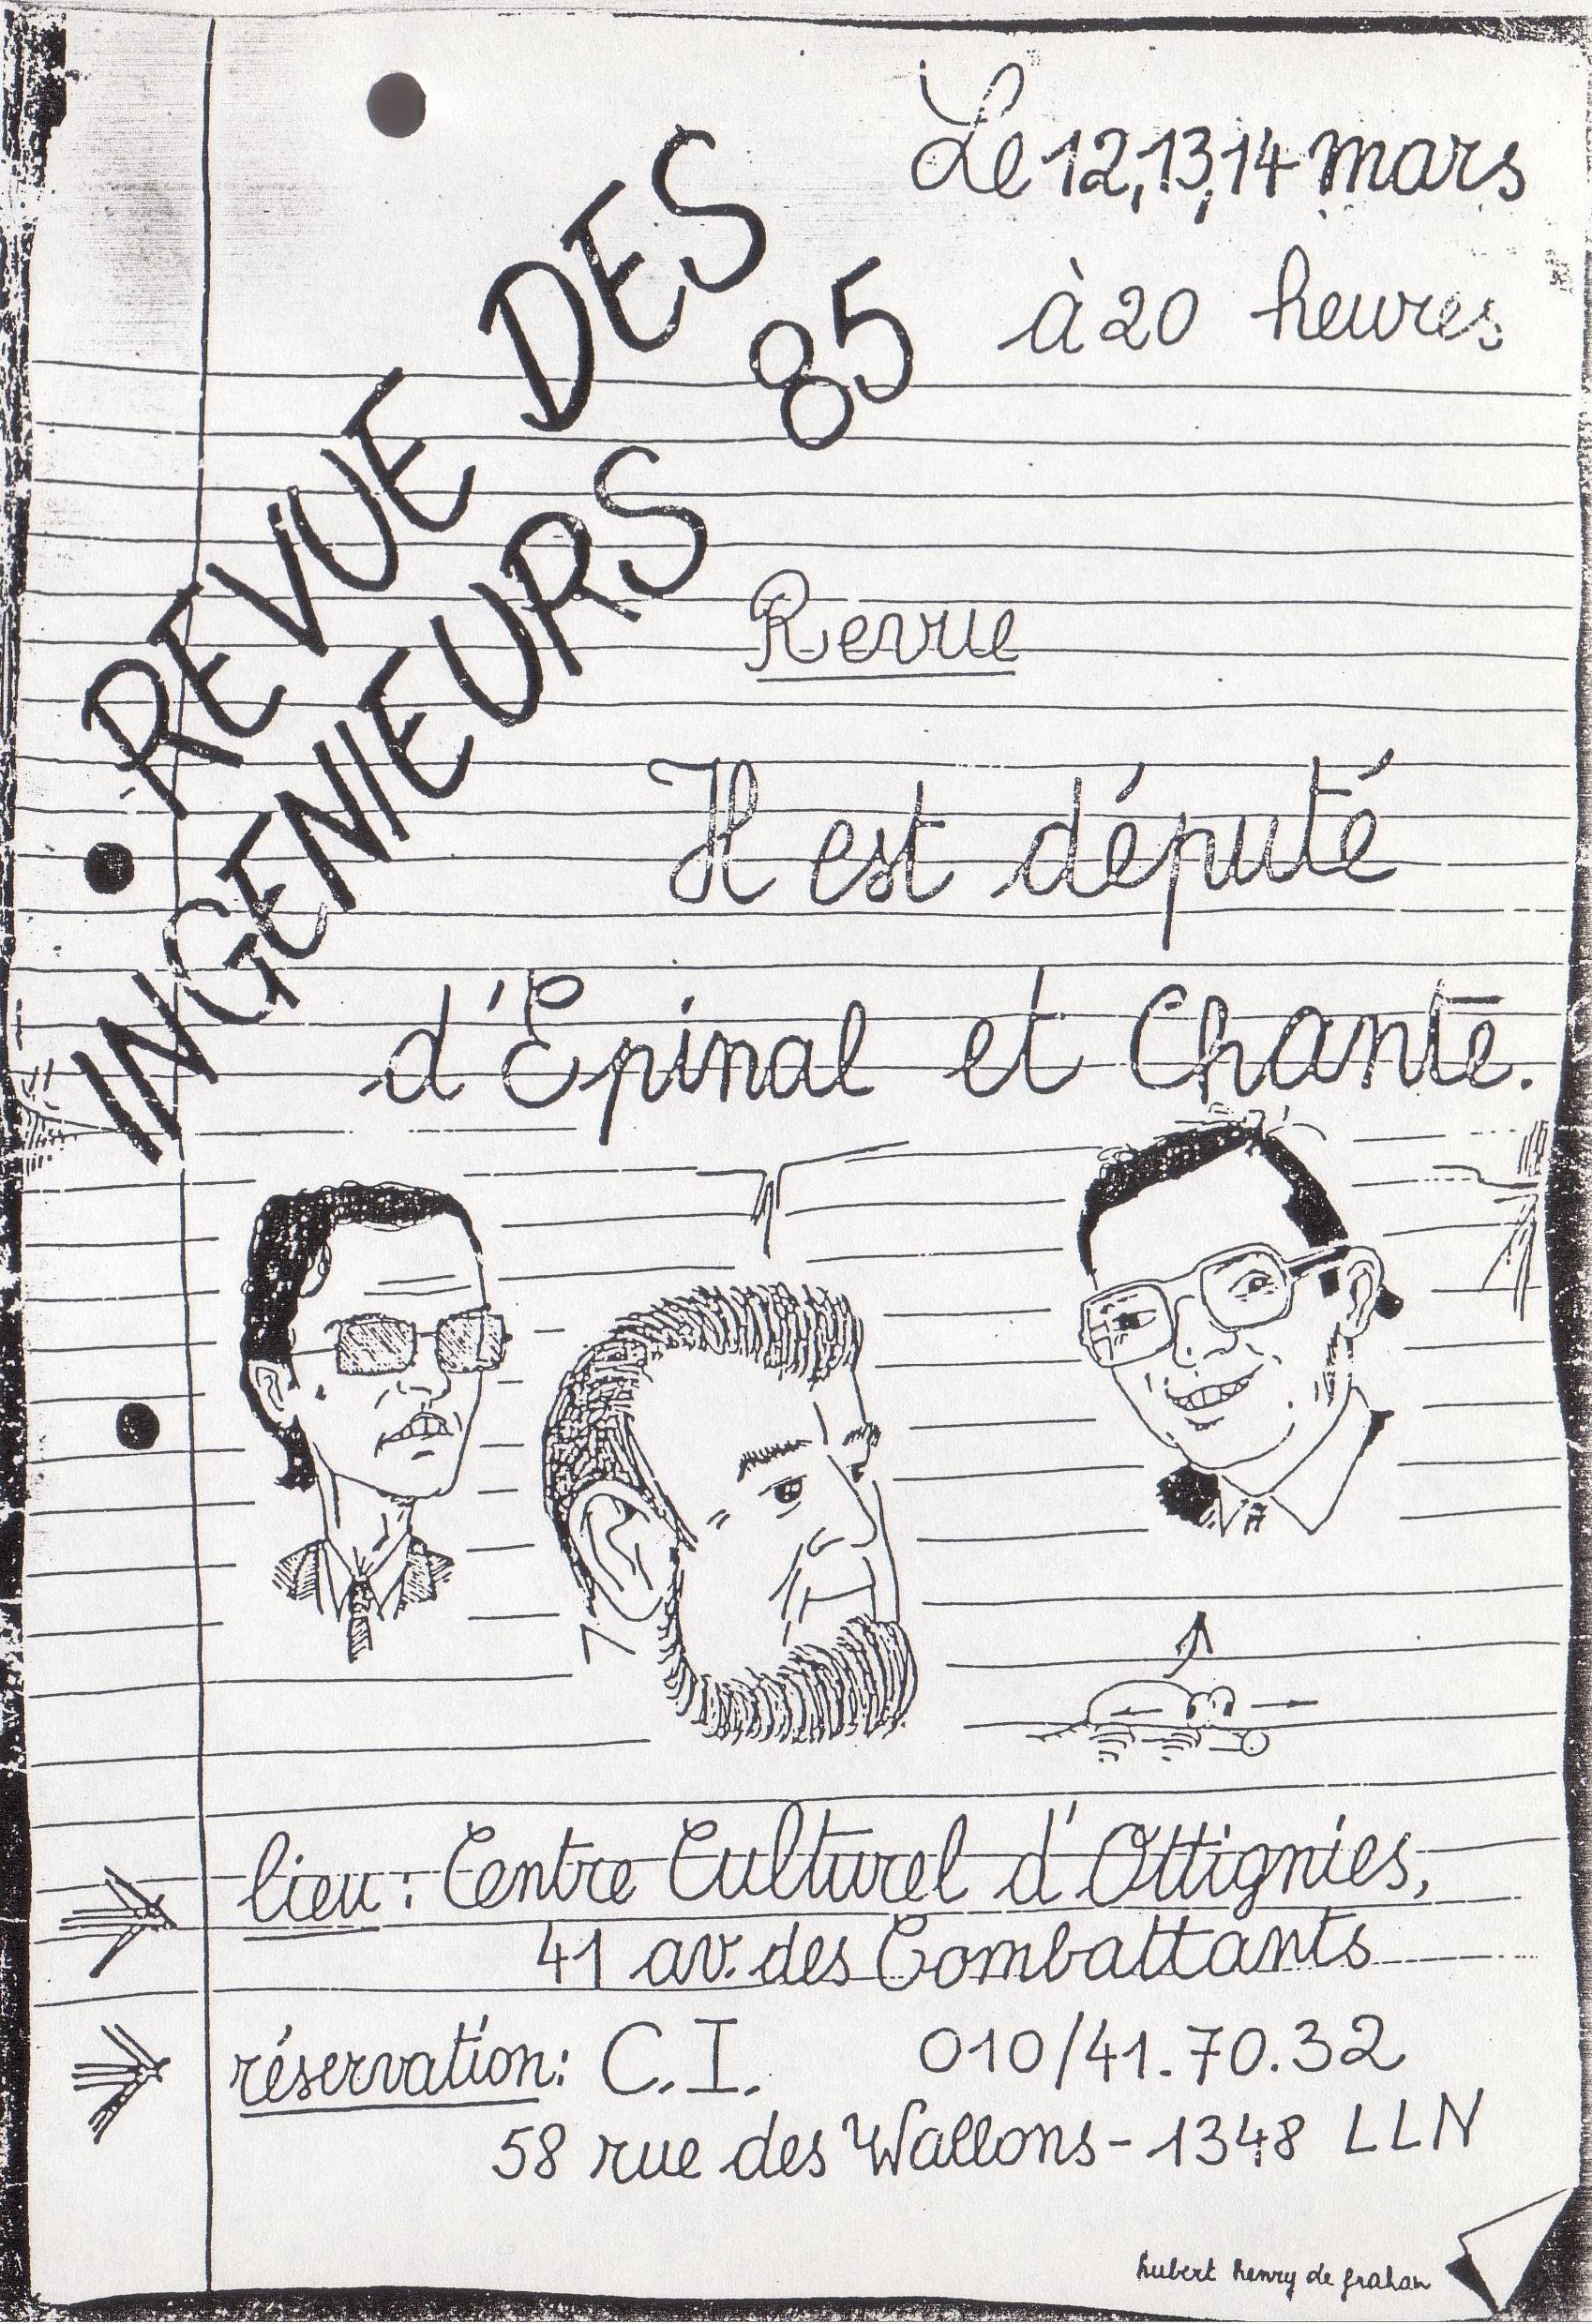 Le 12,13,14 mars
à 20 heures
REVUE DES
INGENIEURS 85
Revue
Il est député
d'Epinal et Chante.
lieu : Centre Culturel d'Ottignies,
41 av. des Combattants
réservation: C.I. 010/41.70.32
58 rue des Wallons - 1348 LLN
hubert henry de frahan